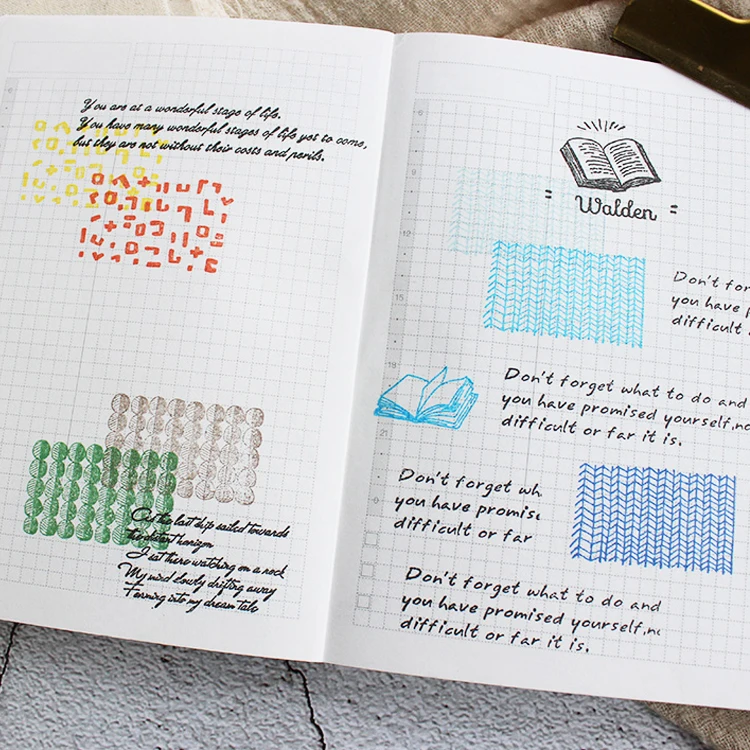 You are at a wonderful stage of life.
You have many wonderful stages of life yet to come,
but they are not without their costs and perils.
As the last ship sailed towards
the distant horizon
I sat there watching on a rock
My mind slowly drifting away
Forming into my dream tale
6
9
12
15
18
21
0
= Walden =
Don't for
you have p
difficult
Don't forget what to do and
you have promised yourself, no
difficult or far it is.
Don't forget wh
you have promis
difficult or far
Don't forget what to do and
you have promised yourself, no
difficult or far it is.